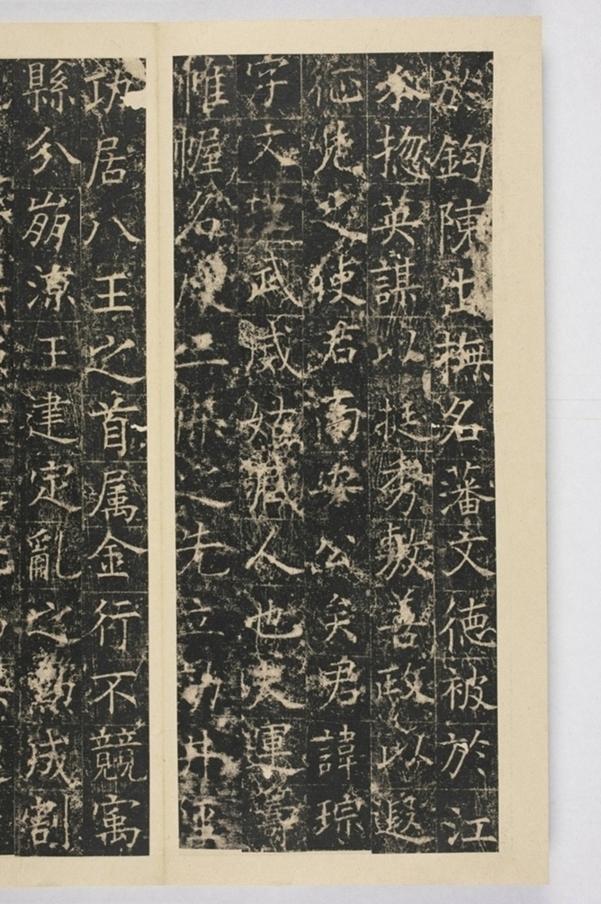 於鈎陳出撫名藩文德被於江
水惣英謀以挺秀敷善政以遐
征見之使君高安公矣君諱琮
字文武威姑臧人也夫運籌
帷幄名三之先立功井陘
功居八王之首属金行不競寓
縣分崩涼王建定亂之勲咸割